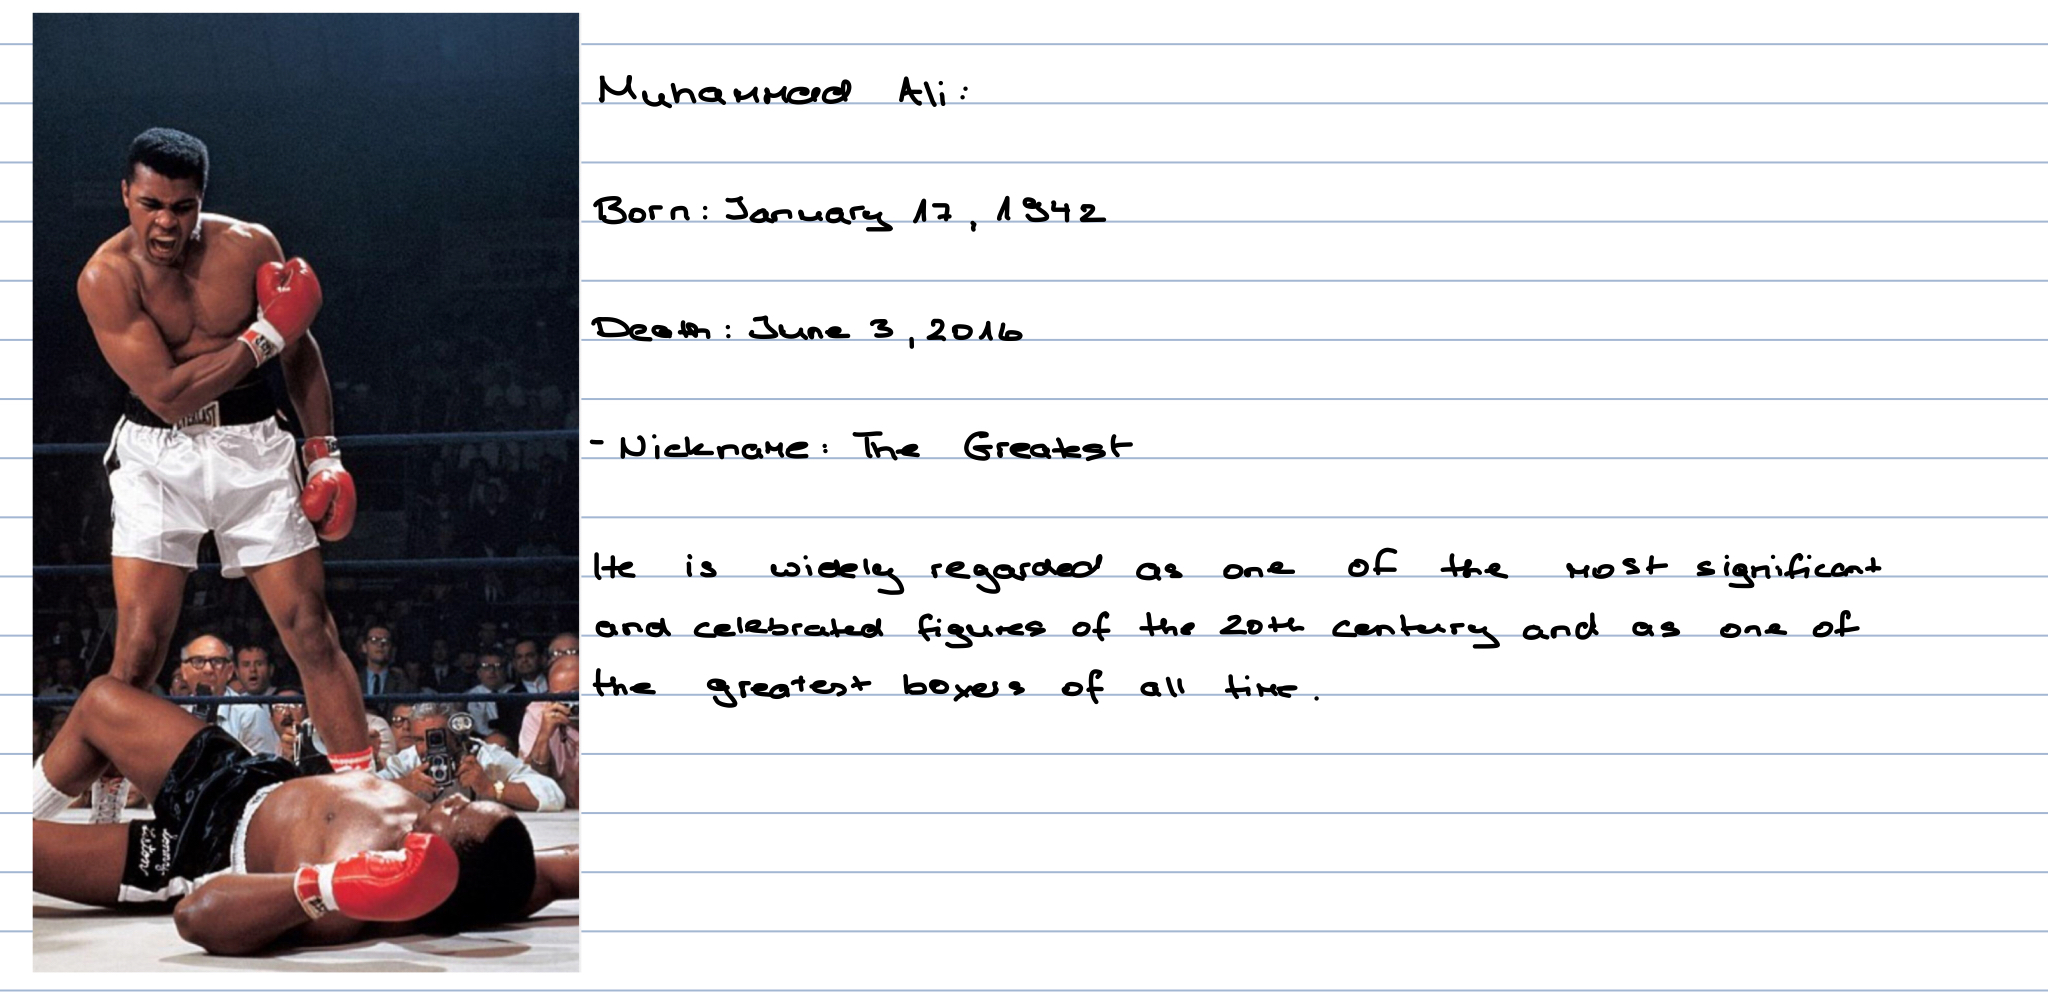 Muhammad Ali:
Born: January 17, 1942
Death: June 3, 2016
- Nickname: The Greatest
He is widely regarded as one of the most significant
and celebrated figures of the 20th century and as one of
the greatest boxers of all time.
EVERLAST
Sonny
Liston